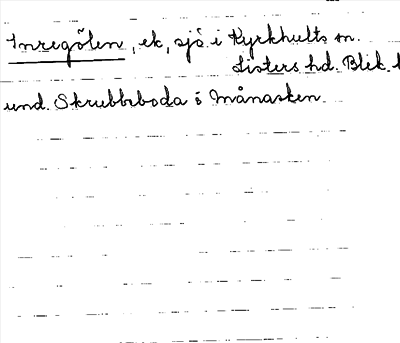 Inregölen, ek, sjö i Kyrkhults sn.
Listers hd. Blek. l
und. Skrubbeboda ö Månasken.